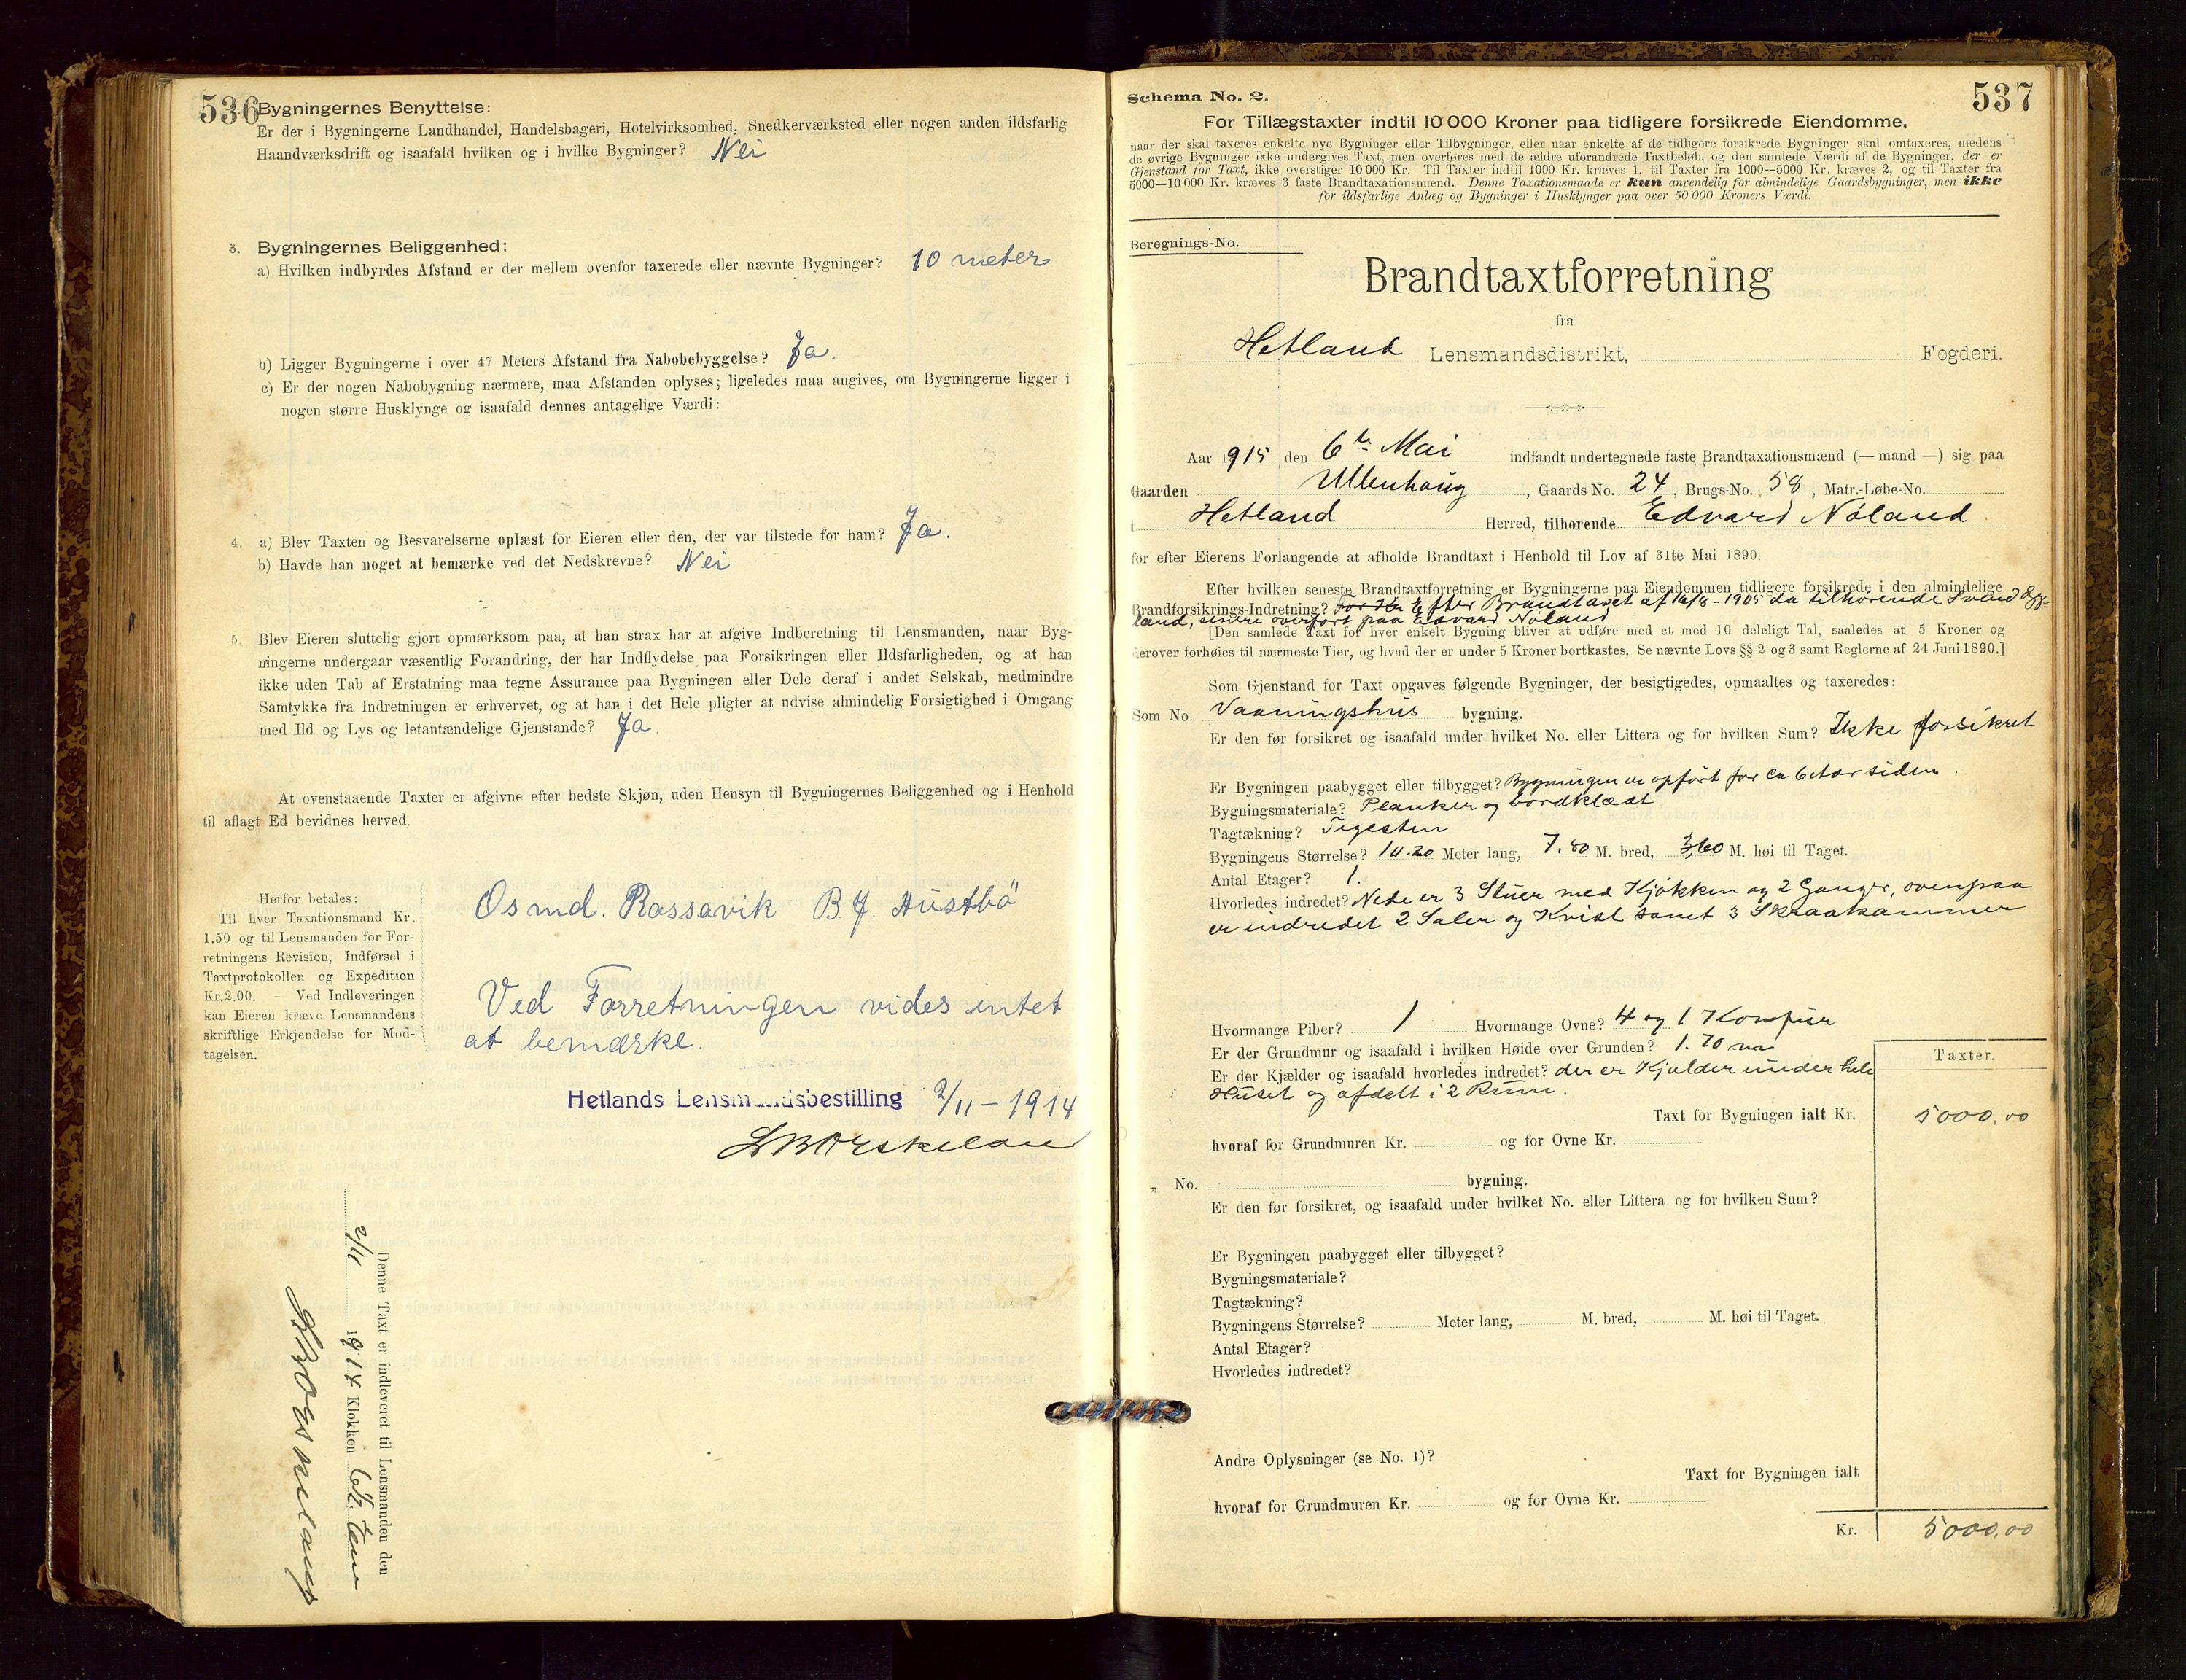 536
Bygningernes Benyttelse:
Er der i Bygningerne Landhandel, Handelsbageri, Hotelvirksomhed, Snedkerværksted eller nogen anden ildsfarlig
Haandværksdrift og isaafald hvilken og i hvilke Bygninger? Nei
3. Bygningernes Beliggenhed:
a) Hvilken indbyrdes Afstand er der mellem ovenfor taxerede eller nævnte Bygninger? 10 meter
b) Ligger Bygningerne i over 47 Meters Afstand fra Nabobebyggelse? Ja.
c) Er der nogen Nabobygning nærmere, maa Afstanden oplyses; ligeledes maa angives, om Bygningerne ligger i
nogen større Husklynge og isaafald dennes antagelige Værdi:
4. a) Blev Taxten og Besvarelserne oplæst for Eieren eller den, der var tilstede for ham? Ja.
b) Havde han noget at bemærke ved det Nedskrevne? Nei
5. Blev Eieren sluttelig gjort opmærksom paa, at han strax har at afgive Indberetning til Lensmanden, naar Byg-
ningerne undergaar væsentlig Forandring, der har Indflydelse paa Forsikringen eller Ildsfarligheden, og at han
ikke uden Tab af Erstatning maa tegne Assurance paa Bygningen eller Dele deraf i andet Selskab, medmindre
Samtykke fra Indretningen er erhvervet, og at han i det Hele pligter at udvise almindelig Forsigtighed i Omgang
med Ild og Lys og letantændelige Gjenstande? Ja.
At ovenstaaende Taxter er afgivne efter bedste Skjøn, uden Hensyn til Bygningernes Beliggenhed og i Henhold
til aflagt Ed bevidnes herved.
Herfor betales:
Til hver Taxationsmand Kr.
1.50 og til Lensmanden for For-
retningens Revision, Indførsel i
Taxtprotokollen og Expedition
Kr. 2.00. — Ved Indleveringen
kan Eieren kræve Lensmandens
skriftlige Erkjendelse for Mod-
tagelsen.
Osmd. Rossavik B. J. Austbø
Ved Forretningen vides intet
at bemærke.
Hetlands Lensmandsbestilling 2/11 - 1914
Denne Taxt er indleveret til Lensmanden den
2/11 1914 Klokken 6½ Em
537
Schema No. 2.
For Tillægstaxter indtil 10 000 Kroner paa tidligere forsikrede Eiendomme,
naar der skal taxeres enkelte nye Bygninger eller Tilbygninger, eller naar enkelte af de tidligere forsikrede Bygninger skal omtaxeres, medens
de øvrige Bygninger ikke undergives Taxt, men overføres med de ældre uforandrede Taxtbeløb, og den samlede Værdi af de Bygninger, der er
Gjenstand for Taxt, ikke overstiger 10 000 Kr. Til Taxter indtil 1000 Kr. kræves 1, til Taxter fra 1000—5000 Kr. kræves 2, og til Taxter fra
5000—10 000 Kr. kræves 3 faste Brandtaxationsmænd. Denne Taxationsmaade er kun anvendelig for almindelige Gaardsbygninger, men ikke
for ildsfarlige Anlæg og Bygninger i Husklynger paa over 50 000 Kroners Værdi.
Beregnings-No.
Brandtaxtforretning
fra
Hetland Lensmandsdistrikt, Fogderi.
Aar 1915 den 6te Mai indfandt undertegnede faste Brandtaxationsmænd (— mand —) sig paa
Gaarden Ullenhaug, Gaards-No. 24, Brugs-No. 58, Matr.-Løbe-No.
i Hetland Herred, tilhørende Edvard Nøland.
for efter Eierens Forlangende at afholde Brandtaxt i Henhold til Lov af 31te Mai 1890.
Efter hvilken seneste Brandtaxtforretning er Bygningerne paa Eiendommen tidligere forsikrede i den almindelige
Brandforsikrings-Indretning? Efter Brandtaxt af 16/8-1905 da tilhørende Svend
land, senere overført paa Edvard Nøland
[Den samlede Taxt for hver enkelt Bygning bliver at udføre med et med 10 deleligt Tal, saaledes at 5 Kroner og
derover forhøies til nærmeste Tier, og hvad der er under 5 Kroner bortkastes. Se nævnte Lovs §§ 2 og 3 samt Reglerne af 24 Juni 1890.]
Som Gjenstand for Taxt opgaves følgende Bygninger, der besigtigedes, opmaaltes og taxeredes:
Som No. Vaaningshus bygning.
Er den før forsikret og isaafald under hvilket No. eller Littera og for hvilken Sum? Ikke forsikret
Er Bygningen paabygget eller tilbygget? Bygningen er opført for ca 6 Aar siden.
Bygningsmateriale? Planker og bordklædt
Tagtækning? Tegesten
Bygningens Størrelse? 10.20 Meter lang, 7.80 M. bred, 3,60 M. høi til Taget.
Antal Etager? 1.
Hvorledes indredet? Nede er 3 Stuer med Kjøkken og 2 Ganger, ovenpaa
er indredet 2 Saler og Kvist samt 3 Skraakammer
Hvormange Piber? 1 Hvormange Ovne? 4 og 1 Komfur
Er der Grundmur og isaafald i hvilken Høide over Grunden? 1.70 m
Er der Kjælder og isaafald hvorledes indredet? der er Kjælder under hele
Huset og afdelt i 2 Rum.
Taxter.
Taxt for Bygningen ialt Kr. 5000,00
hvoraf for Grundmuren Kr. og for Ovne Kr.
„ No. bygning.
Er den før forsikret, og isaafald under hvilket No. eller Littera og for hvilken Sum?
Er Bygningen paabygget eller tilbygget?
Bygningsmateriale?
Tagtækning?
Bygningens Størrelse? Meter lang, M. bred, M. høi til Taget.
Antal Etager?
Hvorledes indredet?
Andre Oplysninger (se No. 1)?
Taxt for Bygningen ialt
hvoraf for Grundmuren Kr. og for Ovne Kr.
Kr. 5000,00